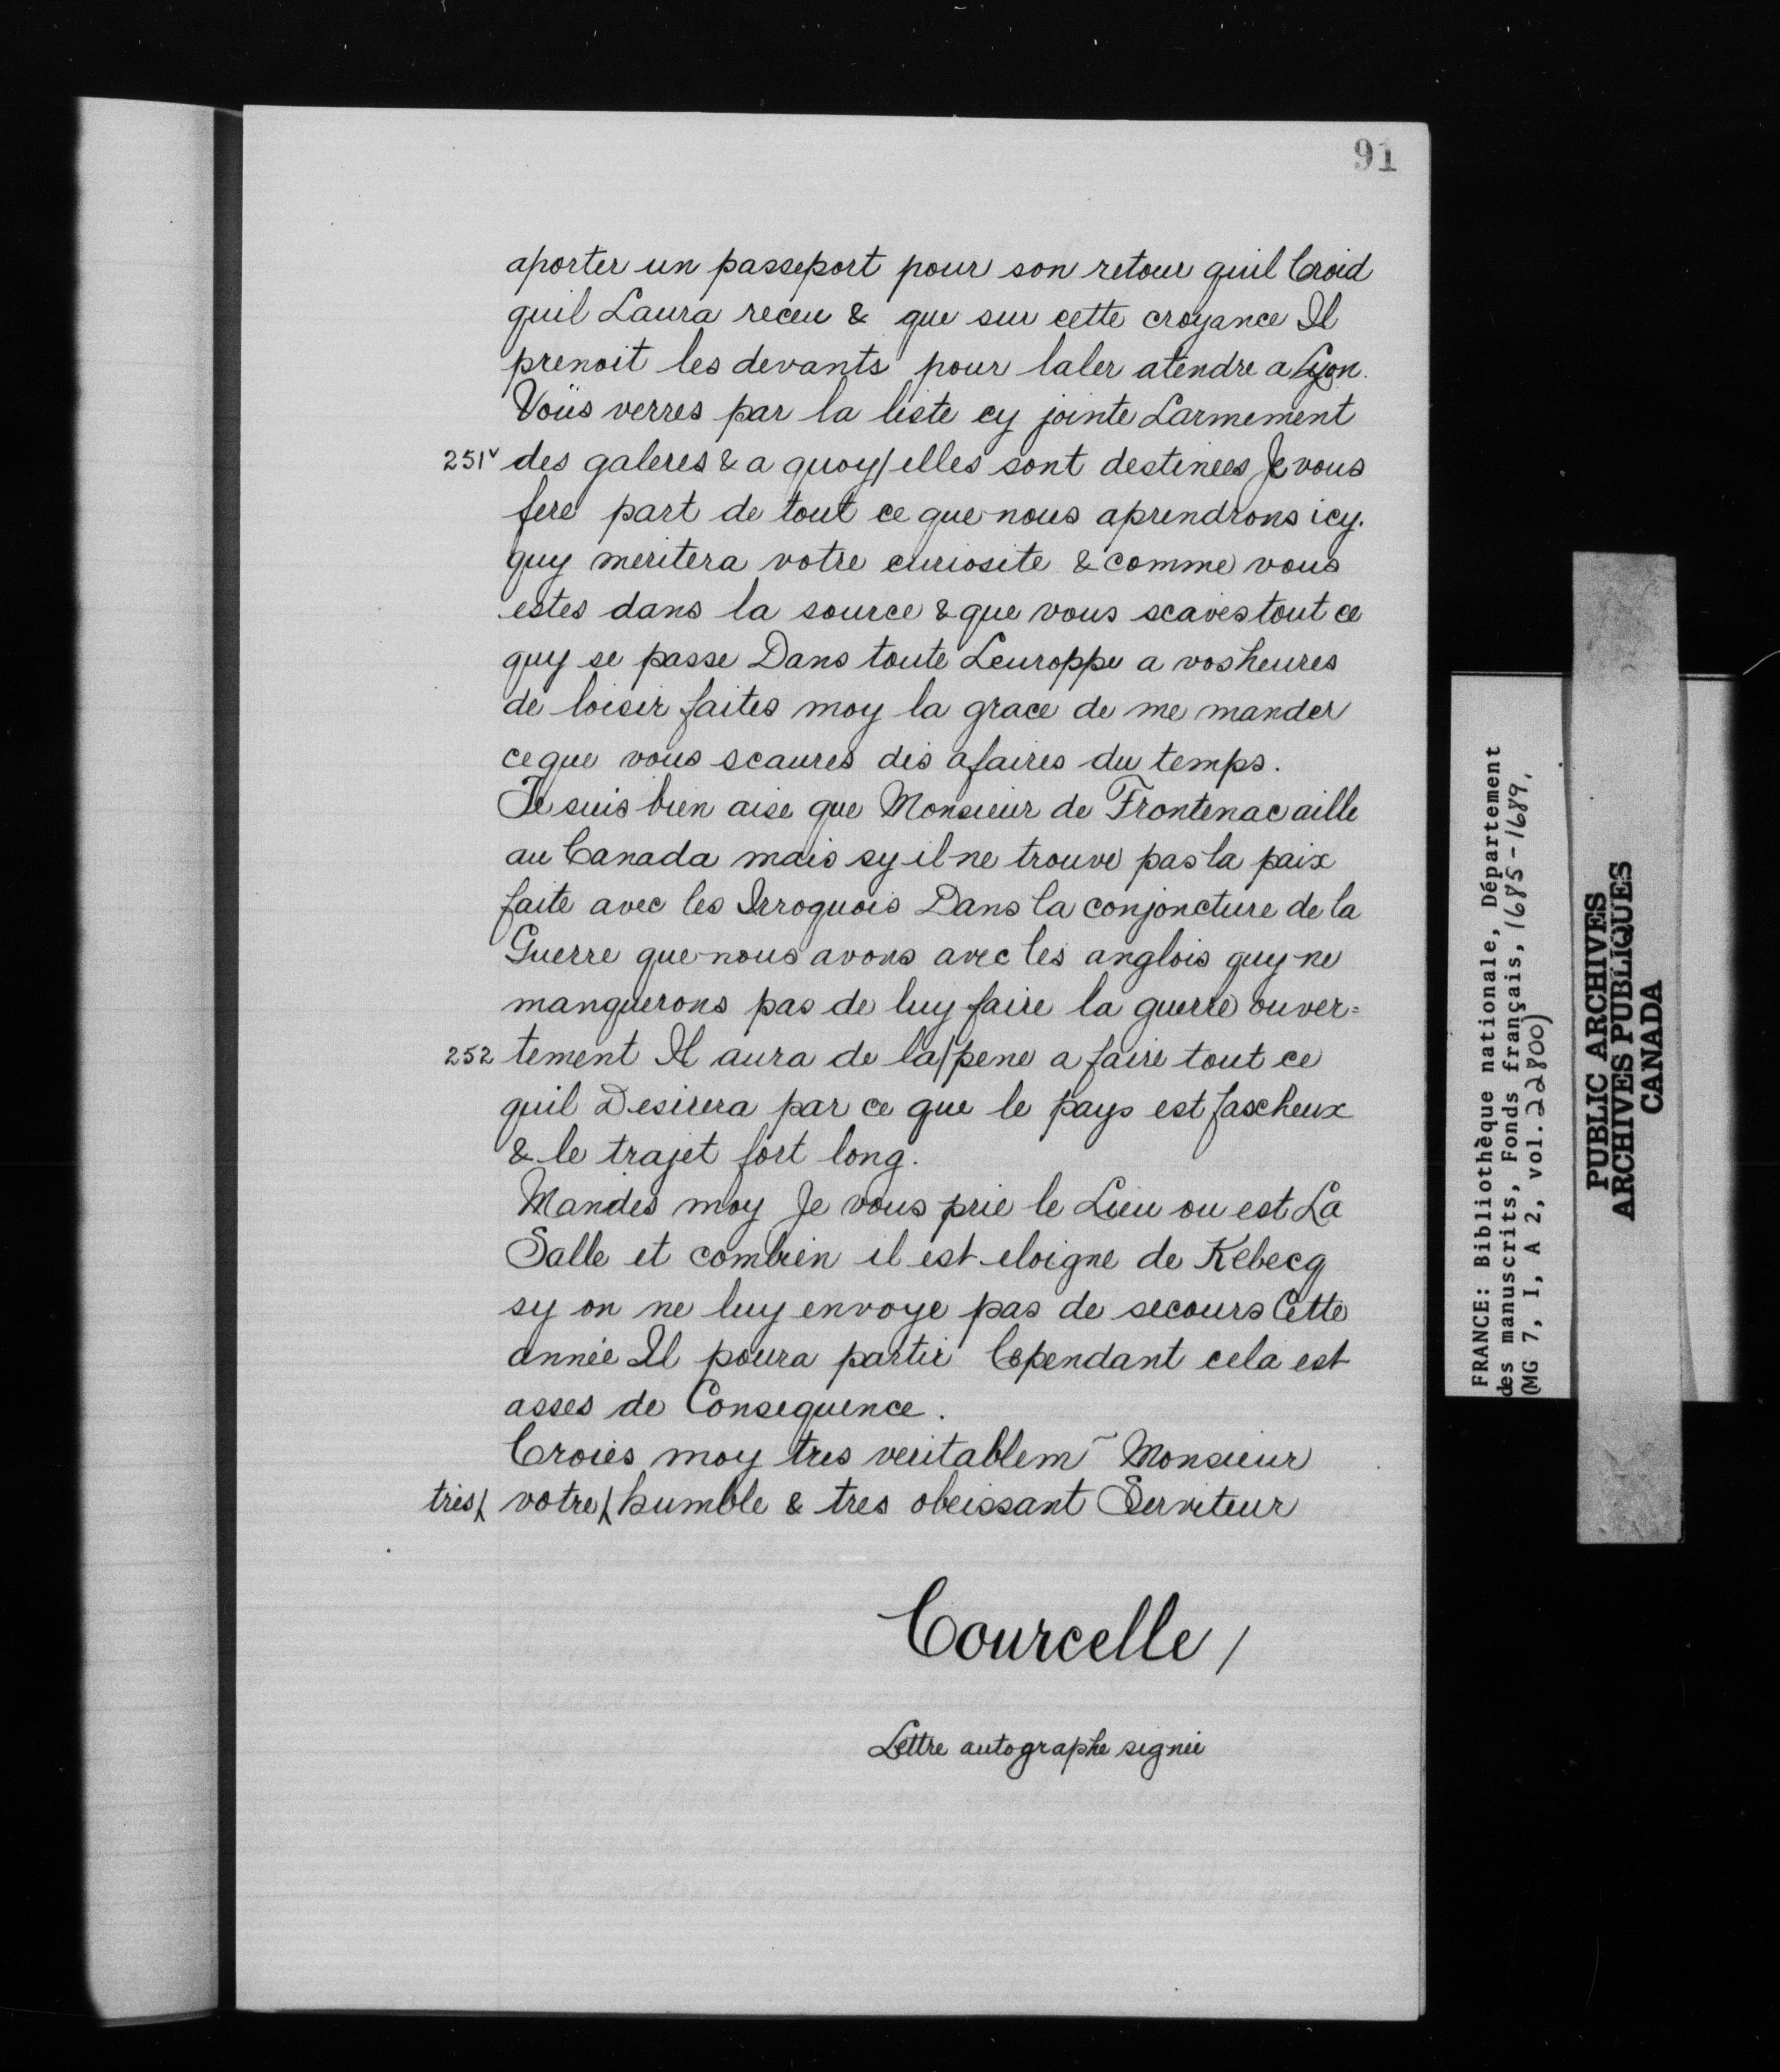 91
aporter un passeport pour son retour quil Croid
quil Laura receu & que sur cette croyance Il
prenoit les devants pour laler atendre a Lyon.
Voüs verres par la liste cy jointe Larmement
251v des galeres & a quoy/elles sont destinees Je vous
fere part de tout ce que nous aprendrons icy.
quy meritera votre curiosite & comme vous
estes dans la source & que vous scaves tout ce
quy se passe Dans toute Leuroppe a vos heures
de loisir faites moy la grace de me mander
ce que vous scaures des afaires du temps.
Je suis bien aise que Monsieur de Frontenac aille
au Canada mais sy il ne trouve pas la paix
faite avec les Irroquois Dans la conjoncture de la
Guerre que nous avons avec les anglois quy ne
manquerons pas de luy faire la guerre ouver=
252 tement Il aura de la/pene a faire tout ce
quil Desirera par ce que le pays est fascheux
& le trajet fort long.
Mandes moy Je vous prie le Lieu ou est La
Salle et combien il est eloigne de Kebecq
sy on ne luy envoye pas de secours Cette
année Il poura partir Cependant cela est
asses de Consequence.
Croies moy tres veritablem~ Monsieur
très/ votre/ humble & tres obeissant Serviteur
Courcelle /
Lettre autographe signée
FRANCE: Bibliothèque nationale, Département
des manuscrits, Fonds français, 1685-1689.
(MG 7, I, A 2, vol. 22800)
PUBLIC ARCHIVES
ARCHIVES PUBLIQUES
CANADA